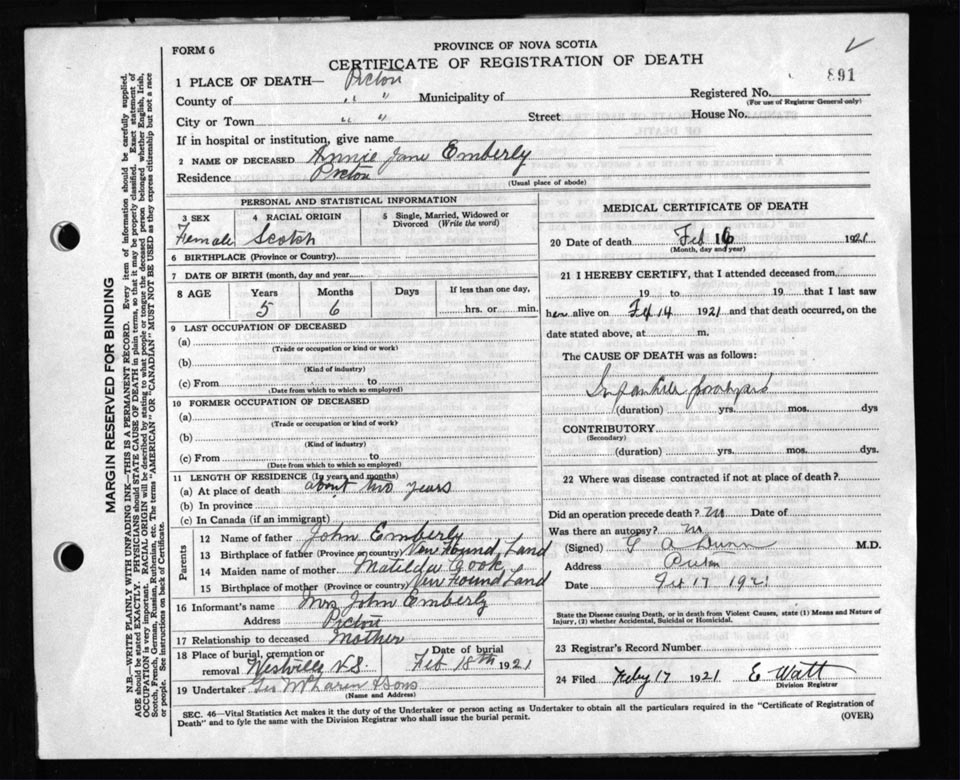 FORM 6
PROVINCE OF NOVA SCOTIA
CERTIFICATE OF REGISTRATION OF DEATH
891
1 PLACE OF DEATH— Pictou
County of " " Municipality of
Registered No.
(For use of Registrar General only)
City or Town " " Street House No.
If in hospital or institution, give name
2 NAME OF DECEASED Annie Jane Emberly
Residence Pictou
(Usual place of abode)
PERSONAL AND STATISTICAL INFORMATION
3 SEX 4 RACIAL ORIGIN 5 Single, Married, Widowed or Divorced (Write the word)
Female Scotch
6 BIRTHPLACE (Province or Country)
7 DATE OF BIRTH (month, day and year)
8 AGE Years Months Days If less than one day,
5 6 hrs. or min.
9 LAST OCCUPATION OF DECEASED
(a)
(Trade or occupation or kind or work)
(b)
(Kind of industry)
(c) From to
(Date from which to which so employed)
10 FORMER OCCUPATION OF DECEASED
(a)
(Trade or occupation or kind of work)
(b)
(Kind of industry)
(c) From to
(Date from which to which so employed)
11 LENGTH OF RESIDENCE (In years and months)
(a) At place of death about two years
(b) In province
(c) In Canada (if an immigrant)
Parents
12 Name of father John Emberly
13 Birthplace of father (Province or country) New Found Land
14 Maiden name of mother Matilda Cook
15 Birthplace of mother (Province or country) New Found Land
16 Informant's name Mrs John Emberly
Address Pictou
17 Relationship to deceased Mother
18 Place of burial, cremation or removal Westville N.S. Date of burial Feb 18th 1921
19 Undertaker Geo McLaren & Sons
(Name and Address)
MEDICAL CERTIFICATE OF DEATH
20 Date of death Feb 16 1921
(Month, day and year)
21 I HEREBY CERTIFY, that I attended deceased from
19 to 19 that I last saw
her alive on Feb 14 1921 and that death occurred, on the
date stated above, at m.
The CAUSE OF DEATH was as follows:
Infantile paralysis
(duration) yrs. mos. dys
CONTRIBUTORY
(Secondary)
(duration) yrs. mos. dys.
22 Where was disease contracted if not at place of death?
Did an operation precede death? no Date of
Was there an autopsy? no
(Signed) G A Dunn M.D.
Address Pictou
Date Feb 17 1921
State the Disease causing Death, or in death from Violent Causes, state (1) Means and Nature of
Injury, (2) whether Accidental, Suicidal or Homicidal.
23 Registrar's Record Number
24 Filed Feby 17 1921 E Watt
Division Registrar
SEC. 46—Vital Statistics Act makes it the duty of the Undertaker or person acting as Undertaker to obtain all the particulars required in the "Certificate of Registration of
Death" and to fyle the same with the Division Registrar who shall issue the burial permit.
(OVER)
MARGIN RESERVED FOR BINDING
N.B.—WRITE PLAINLY WITH UNFADING INK—THIS IS A PERMANENT RECORD. Every item of information should be carefully supplied.
AGE should be stated EXACTLY. PHYSICIANS should STATE CAUSE OF DEATH in plain terms, so that it may be properly classified. Exact statement of
OCCUPATION is very important. RACIAL ORIGIN will be described by stating to what people or tongue the deceased person belonged whether English, Irish,
Scotch, French, German, Russian, Ruthenian, etc. The terms "AMERICAN" OR "CANADIAN" MUST NOT BE USED as they express citizenship but not a race
or people. See instructions on back of Certificate.